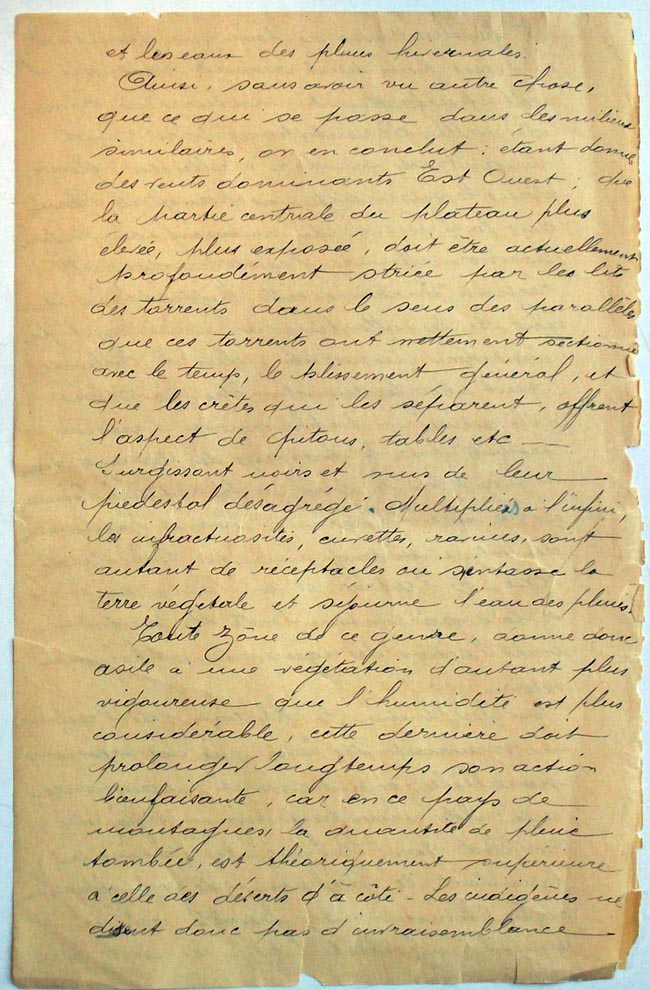 et les eaux des pluies hivernales.
Ainsi, sans avoir vu autre chose,
que ce qui se passe dans des milieux
similaires, on en conclut : étant donné
des vents dominants Est Ouest ; que
la partie centrale du plateau plus
élevée, plus exposée, doit être actuellement
profondément striée par les lits
des torrents dans le sens des parallèles
que ces torrents ont nettement sectionné
avec le temps, le plissement général, et
que les crêtes qui les séparent, offrent
l'aspect de pitons, tables etc —
Surgissant noirs et nus de leur
piedestal désagrégé. Multipliés à l'infini,
les infractuosités, cuvettes, ravins, sont
autant de réceptacles où s'entasse la
terre végétale et séjourne l'eau des pluies.
Toute zône de ce genre, donne donc
asile à une végétation d'autant plus
vigoureuse que l'humidité est plus
considérable, cette dernière doit
prolonger longtemps son action
bienfaisante, car en ce pays de
montagnes, la quantité de pluie
tombée, est théoriquement supérieure
à celle des déserts d'à côté - Les indigènes ne
disent donc pas d'invraisemblance —